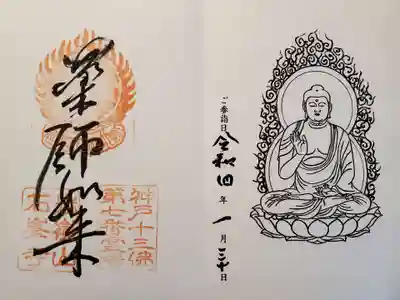 ご参詣日 令和四年一月三十日
薬師如来
神戸十三佛
第七番霊場
石峯寺